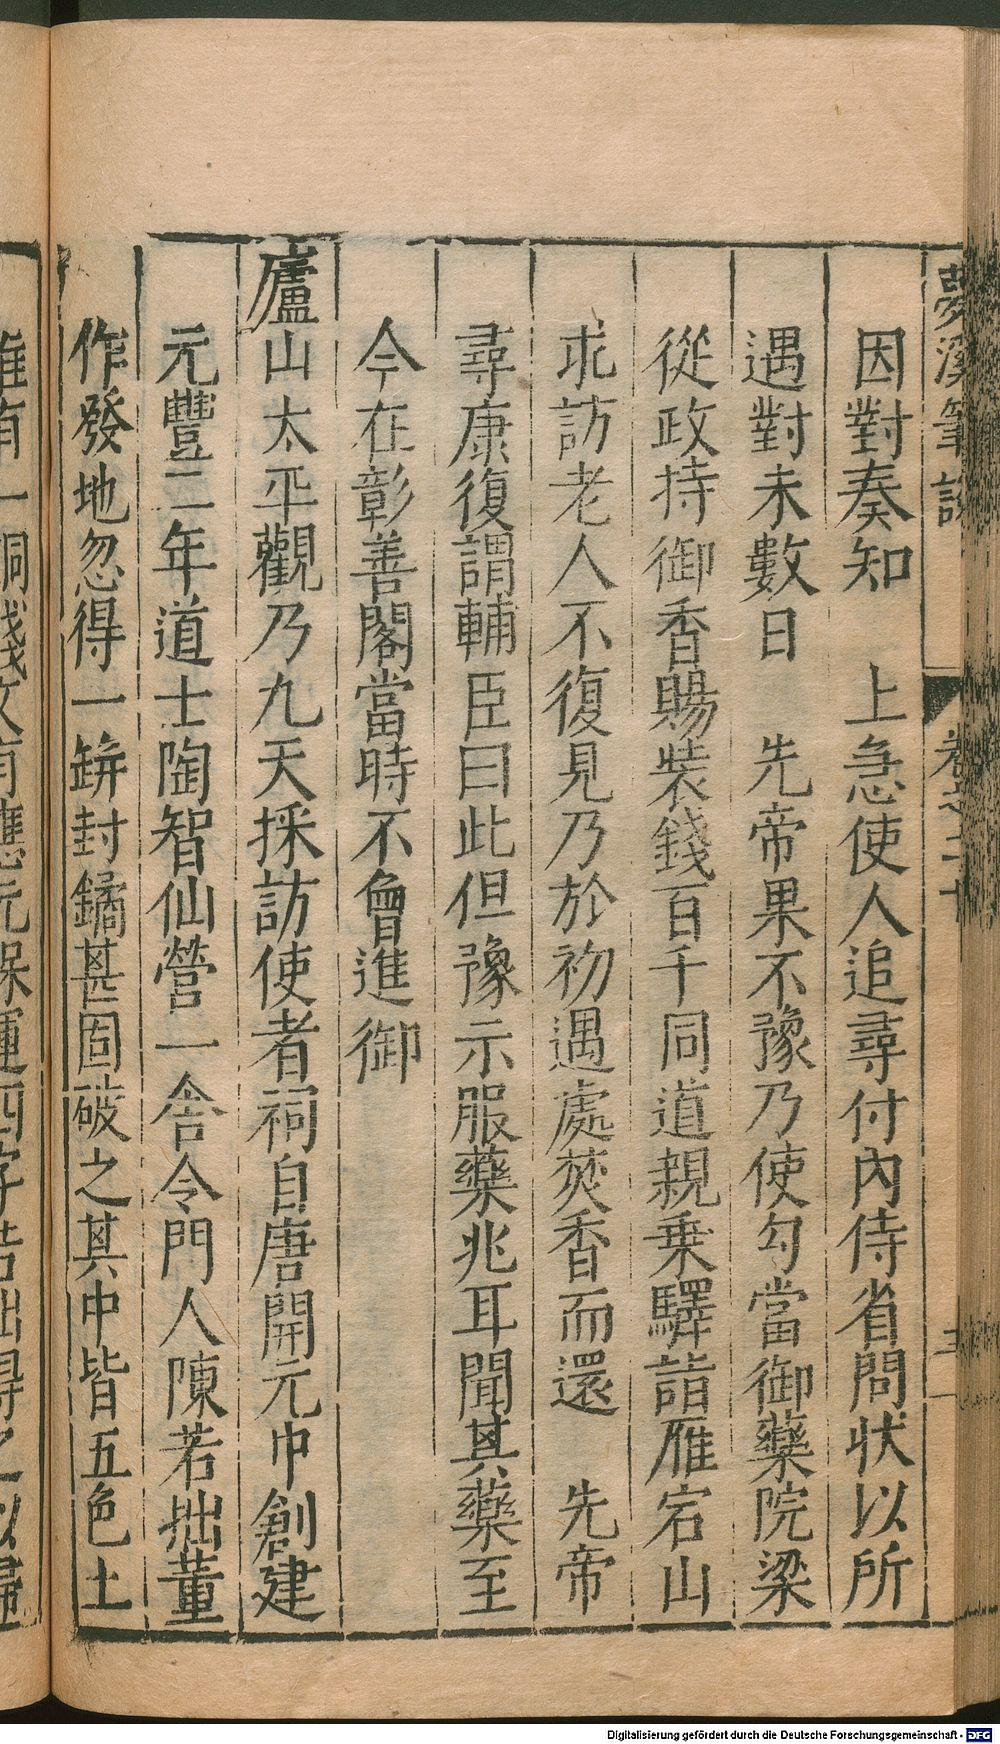 夢溪筆談
卷之二十
三
因對奏知　上急使人追尋付內侍省問狀以所
遇對未數日　先帝果不豫乃使勾當御藥院梁
從政持御香賜裝錢百千同道親乗驛詣雁宕山
求訪老人不復見乃於初遇處焚香而還　先帝
尋康復謂輔臣曰此但豫示服藥兆耳聞其藥至
今在彰善閣當時不會進御
廬山太平觀乃九天採訪使者祠自唐開元中創建
元豐二年道士陶智仙營一舍令門人陳若拙董
作發地忽得一缾封鐍甚固破之其中皆五色土
唯有一銅錢文有應元保運四字若拙得之以歸
Digitalisierung gefördert durch die Deutsche Forschungsgemeinschaft - DFG